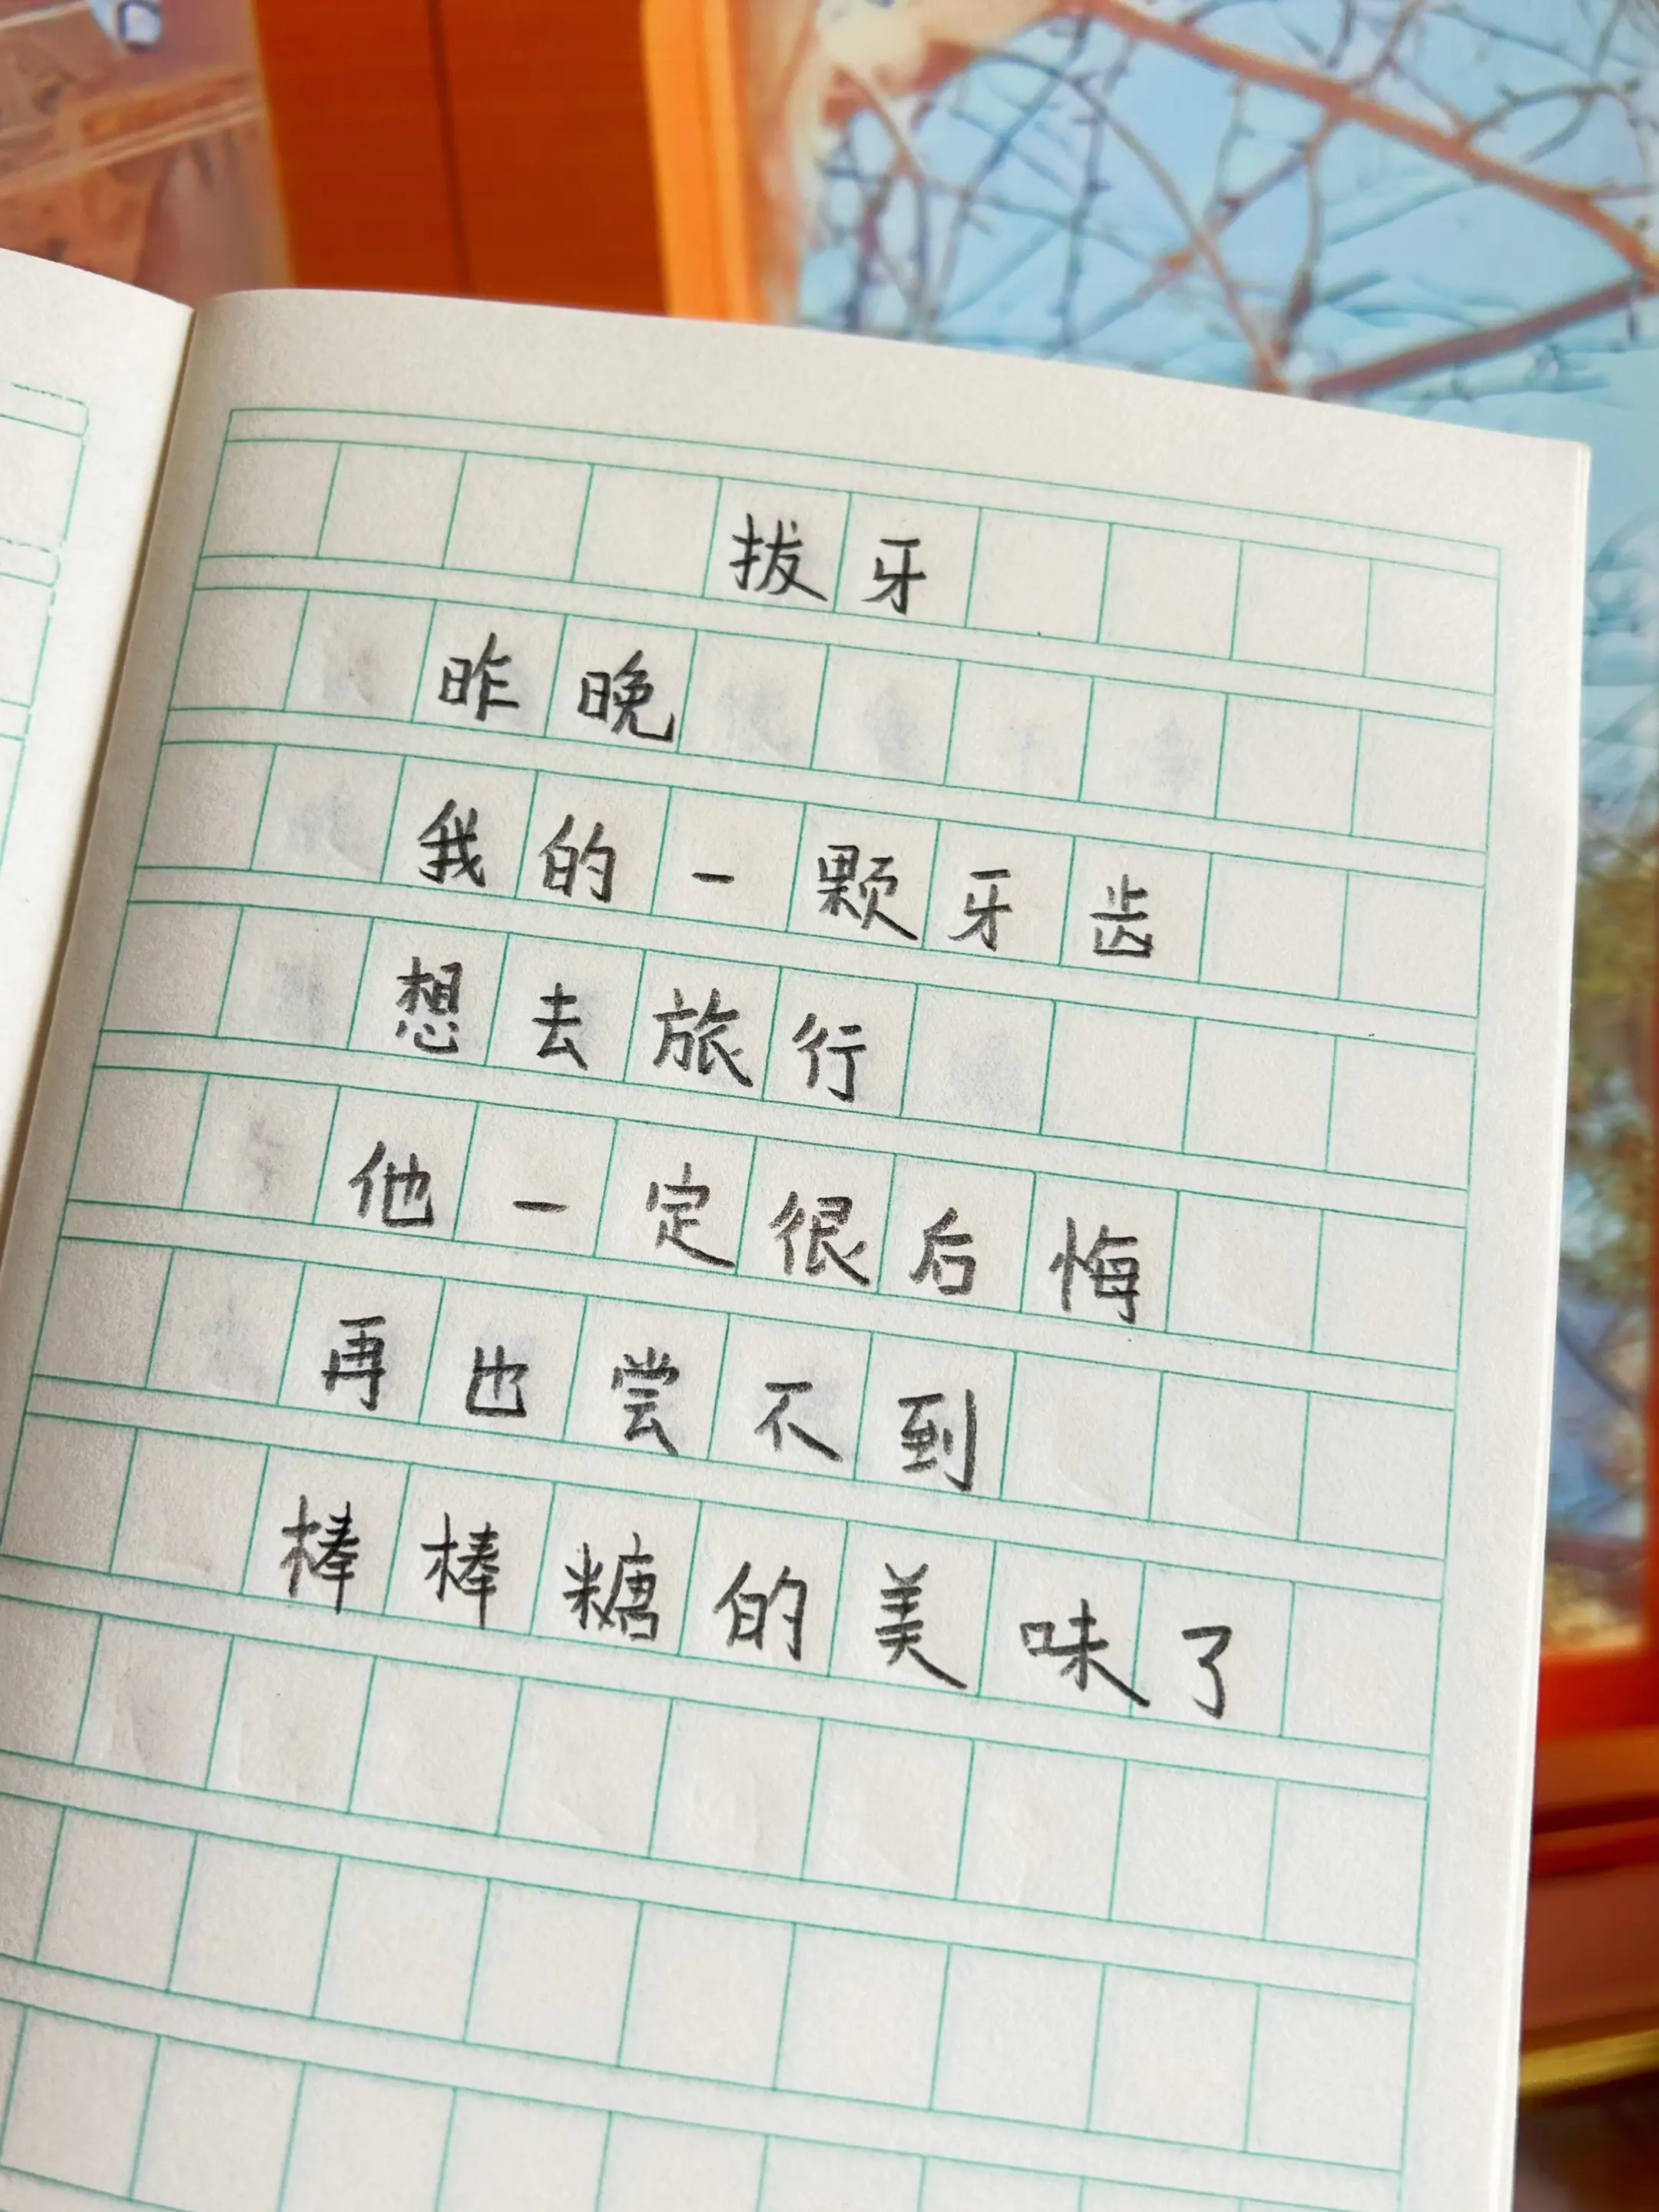 拔牙
昨晚
我的一颗牙齿
想去旅行
他一定很后悔
再也尝不到
棒棒糖的美味了